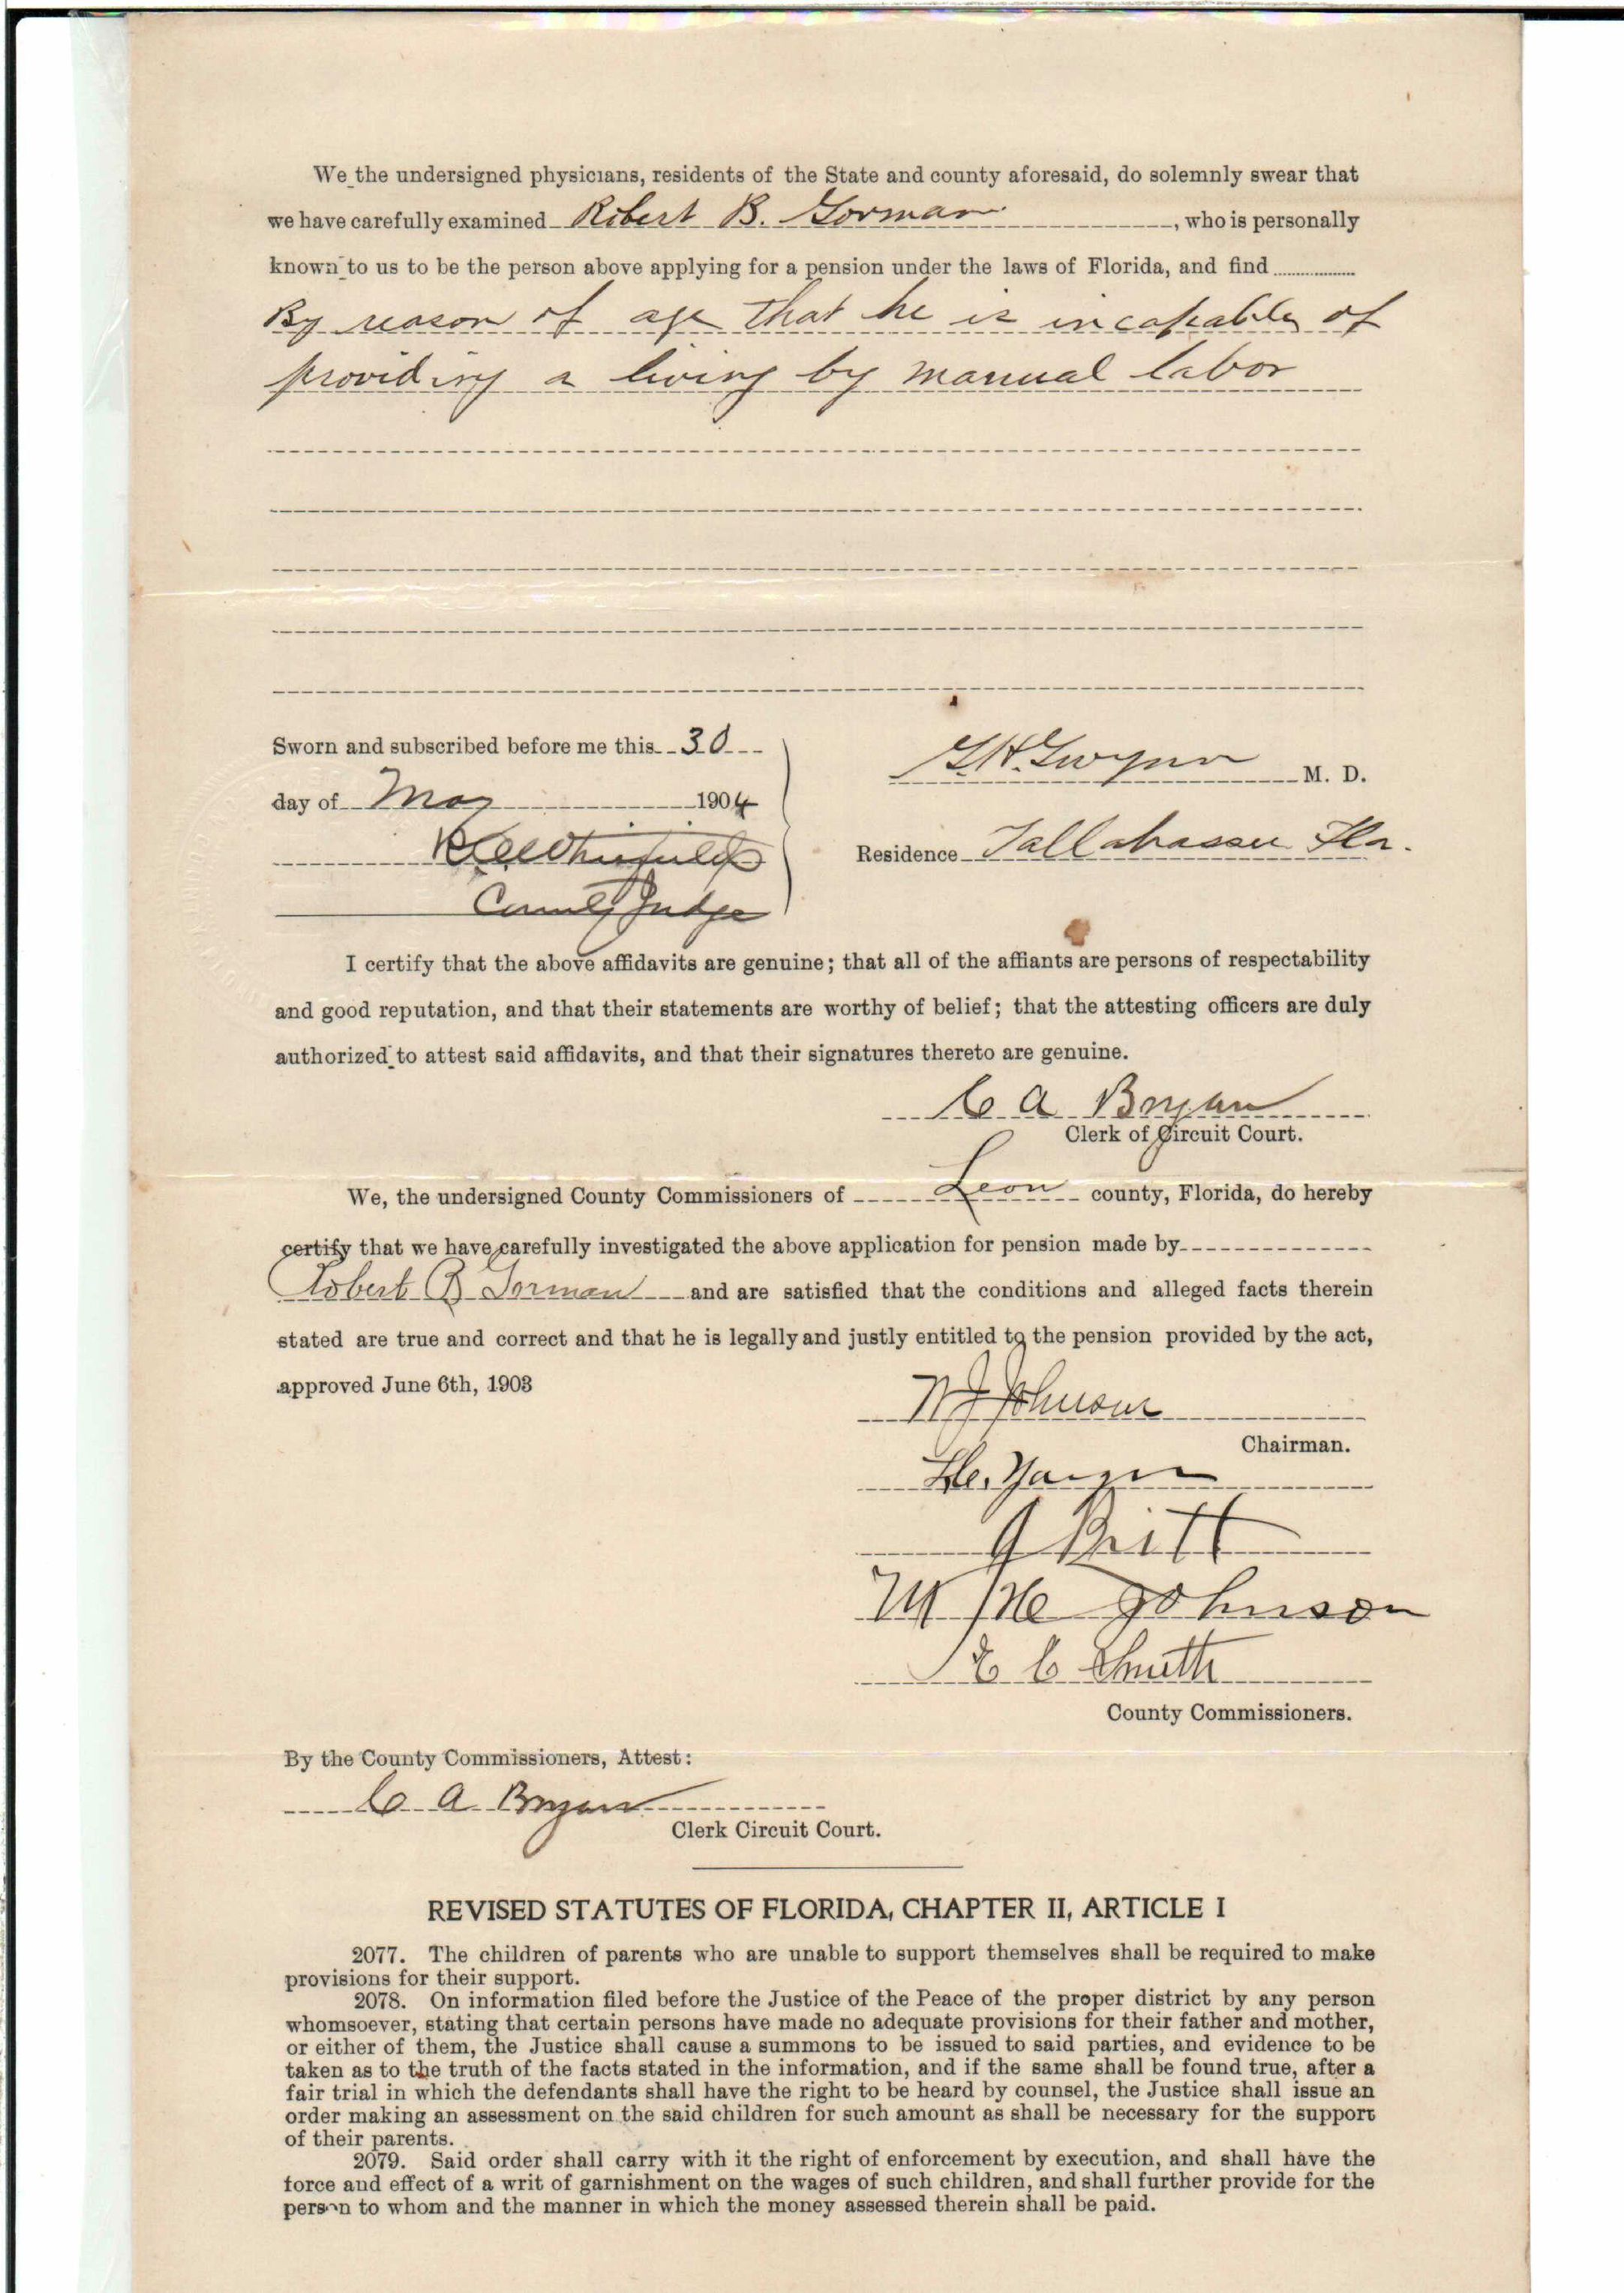 We the undersigned physicians, residents of the State and county aforesaid, do solemnly swear that
we have carefully examined Robert B. Gorman, who is personally
known to us to be the person above applying for a pension under the laws of Florida, and find
By reason of age that he is incapable of
providing a living by manual labor
Sworn and subscribed before me this 30
day of May 1904
County Judge
G.H. Gwynn M. D.
Residence Tallahassee Fla.
I certify that the above affidavits are genuine; that all of the affiants are persons of respectability
and good reputation, and that their statements are worthy of belief; that the attesting officers are duly
authorized to attest said affidavits, and that their signatures thereto are genuine.
C A Bryan
Clerk of Circuit Court.
We, the undersigned County Commissioners of Leon county, Florida, do hereby
certify that we have carefully investigated the above application for pension made by
Robert B Gorman and are satisfied that the conditions and alleged facts therein
stated are true and correct and that he is legally and justly entitled to the pension provided by the act,
approved June 6th, 1903
Johnson
Chairman.
Yaeger
J Britt
Johnson
E C Smith
County Commissioners.
By the County Commissioners, Attest:
C A Bryan
Clerk Circuit Court.
REVISED STATUTES OF FLORIDA, CHAPTER II, ARTICLE I
2077. The children of parents who are unable to support themselves shall be required to make
provisions for their support.
2078. On information filed before the Justice of the Peace of the proper district by any person
whomsoever, stating that certain persons have made no adequate provisions for their father and mother,
or either of them, the Justice shall cause a summons to be issued to said parties, and evidence to be
taken as to the truth of the facts stated in the information, and if the same shall be found true, after a
fair trial in which the defendants shall have the right to be heard by counsel, the Justice shall issue an
order making an assessment on the said children for such amount as shall be necessary for the support
of their parents.
2079. Said order shall carry with it the right of enforcement by execution, and shall have the
force and effect of a writ of garnishment on the wages of such children, and shall further provide for the
person to whom and the manner in which the money assessed therein shall be paid.